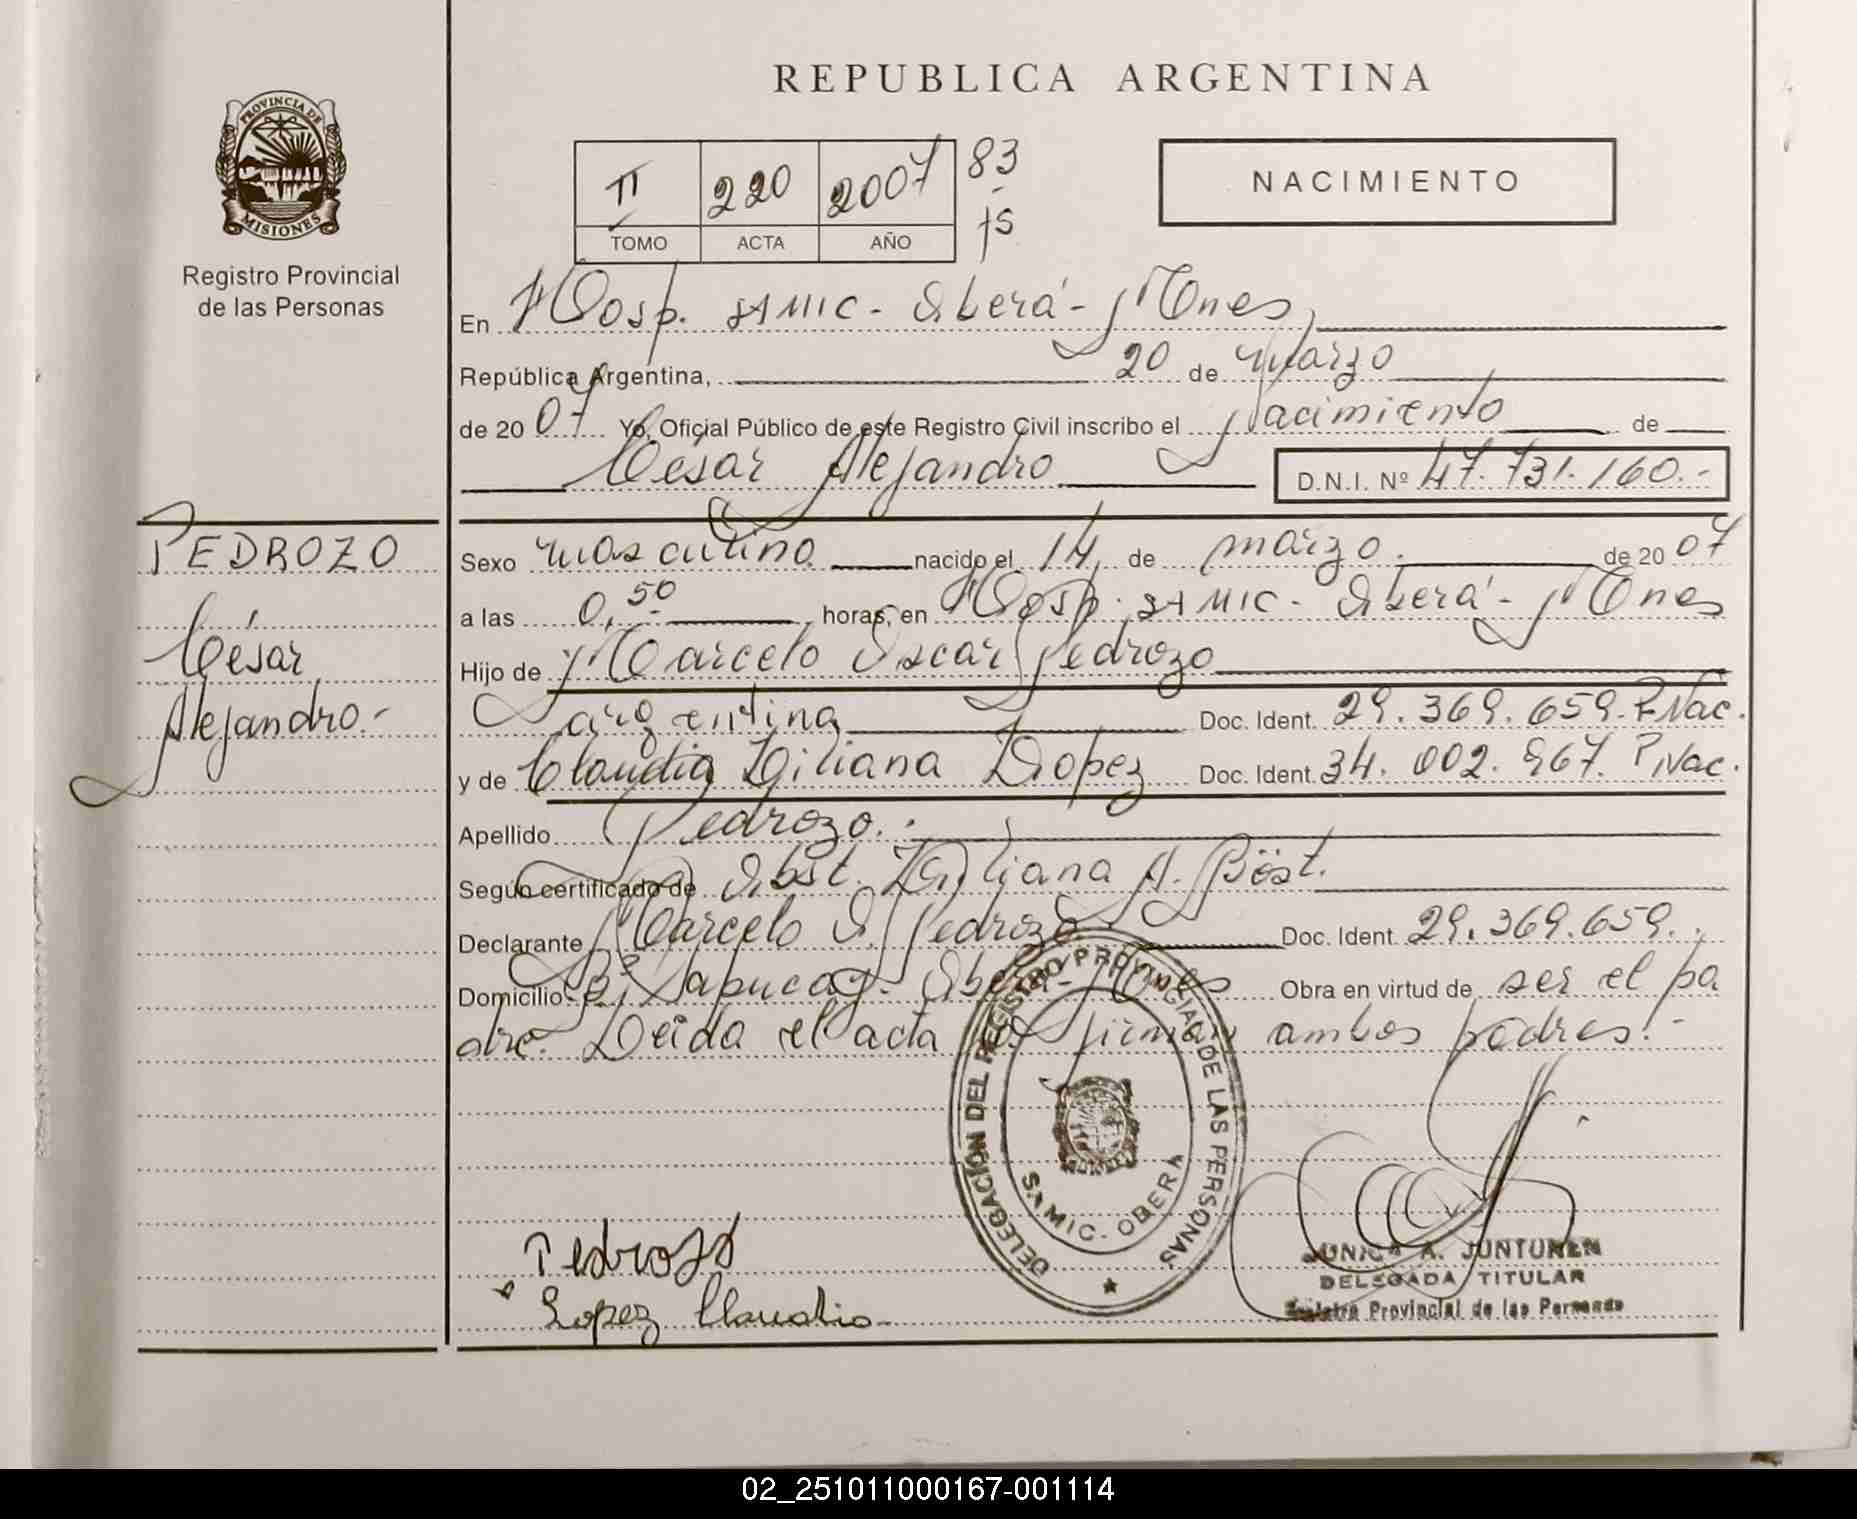 REPUBLICA ARGENTINA
PROVINCIA DE
MISIONES
Registro Provincial
de las Personas
II 220 2007 83
TOMO ACTA AÑO
NACIMIENTO
En Hosp. SAMIC - Oberá - Mnes,
República Argentina, 20 de marzo
de 2007 Yo, Oficial Público de este Registro Civil inscribo el Nacimiento de
César Alejandro D.N.I. Nº 47.731.160.-
PEDROZO
César
Alejandro.-
Sexo masculino nacido el 14 de marzo. de 2007
a las 0,50 horas, en Hosp. SAMIC - Oberá - Mnes
Hijo de Marcelo Oscar Pedrozo
argentina Doc. Ident. 29.369.659. P.Nac.
y de Claudia Liliana Lopez Doc. Ident. 34.002.967. P.Nac.
Apellido Pedrozo.
Según certificado de Obst. Liliana A. Böst.
Declarante Marcelo O. Pedrozo Doc. Ident. 29.369.659.
Domicilio Bº Sapucay - Oberá - Mnes Obra en virtud de ser el pa
dre. Leída el acta la firman ambos padres.-
DELEGACIÓN DEL REGISTRO PROVINCIAL DE LAS PERSONAS
SAMIC. OBERA
Pedrozo
Lopez Claudia
A. JUNTUNEN
DELEGADA TITULAR
Registro Provincial de las Personas
02_251011000167-001114